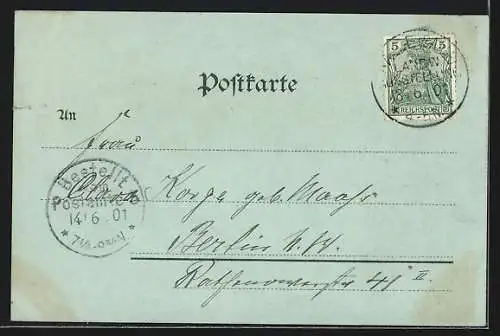 5 5
REICHSPOST
Postkarte
An
Frau
Bestellt
Postamt
14/6 01
Clara Korge geb. Maass
Berlin N.W.
Rathenowerstr 49 II